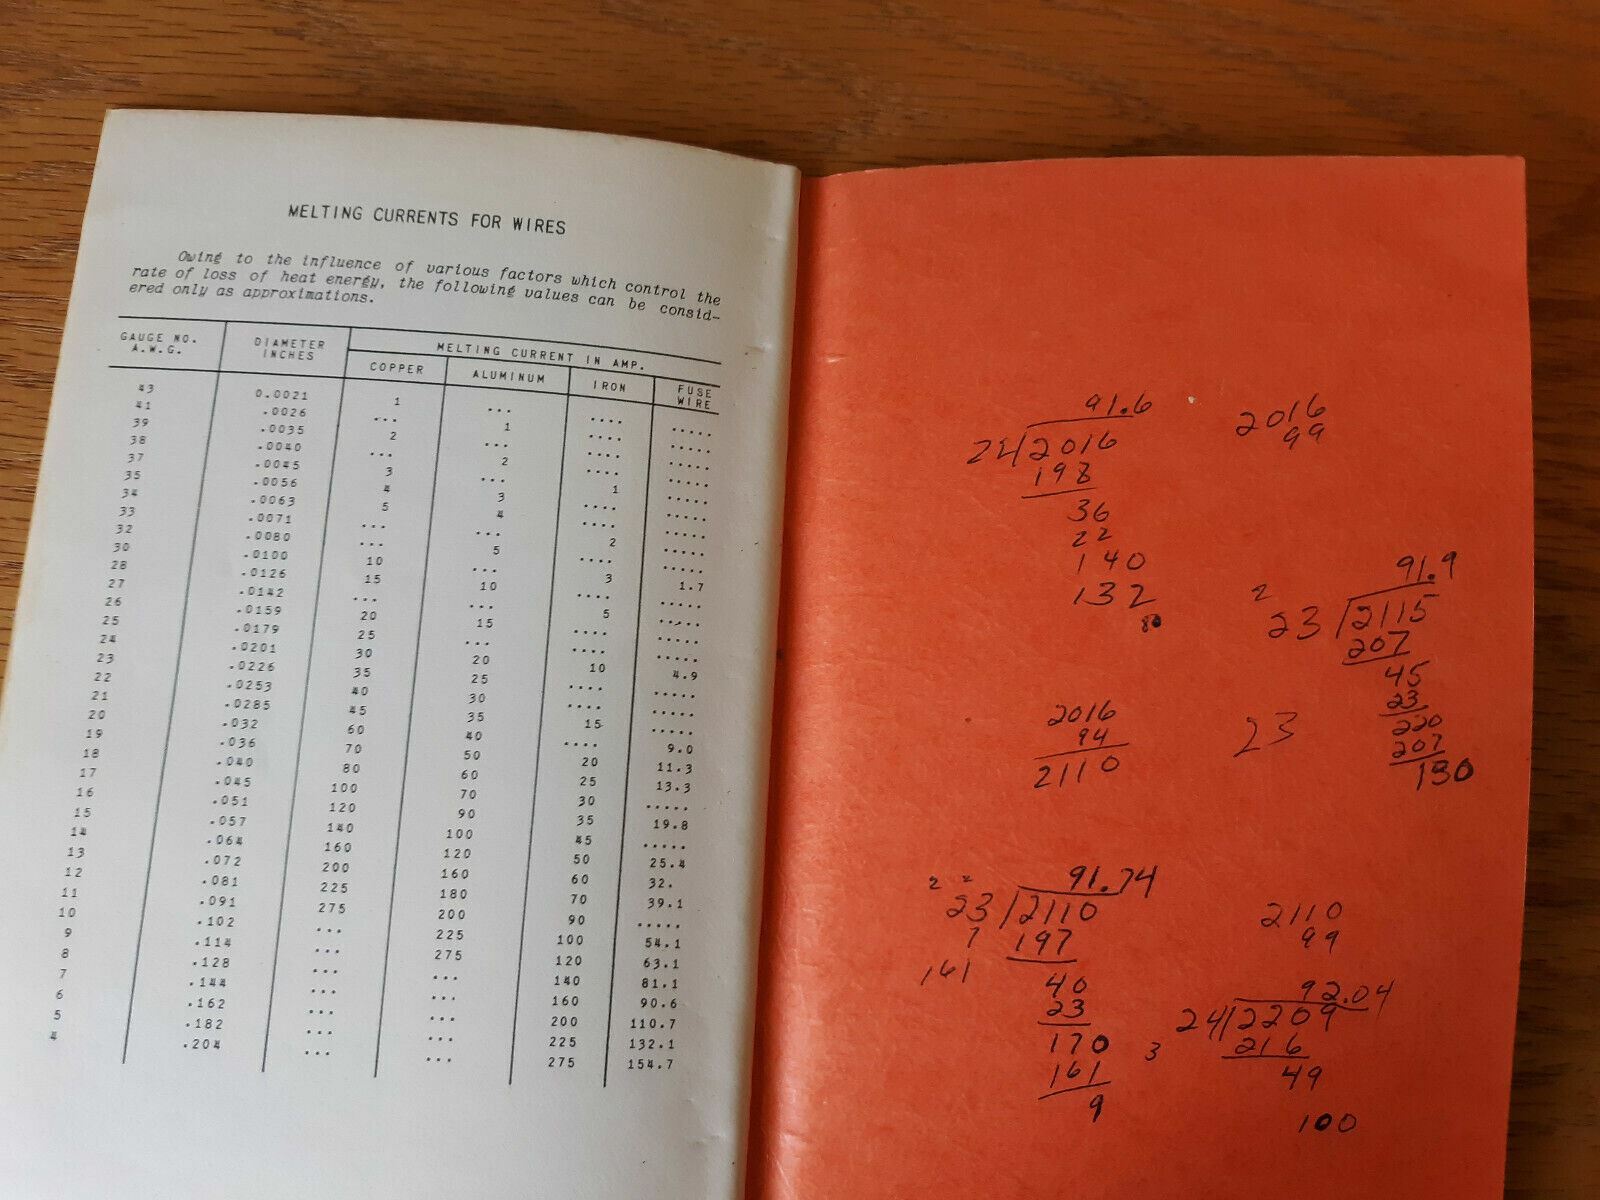 MELTING CURRENTS FOR WIRES
Owing to the influence of various factors which control the
rate of loss of heat energy, the following values can be consid-
ered only as approximations.
GAUGE NO. A.W.G. DIAMETER INCHES MELTING CURRENT IN AMP.
COPPER ALUMINUM IRON FUSE WIRE
43 0.0021 1 ... .... .....
41 .0026 ... 1 .... .....
39 .0035 2 ... .... .....
38 .0040 ... 2 .... .....
37 .0045 3 ... 1 .....
35 .0056 4 3 .... .....
34 .0063 5 4 .... .....
33 .0071 ... ... 2 .....
32 .0080 ... 5 .... .....
30 .0100 10 ... 3 1.7
28 .0126 15 10 .... .....
27 .0142 ... ... 5 .....
26 .0159 20 15 .... .....
25 .0179 25 ... .... .....
24 .0201 30 20 10 4.9
23 .0226 35 25 .... .....
22 .0253 40 30 .... .....
21 .0285 45 35 15 .....
20 .032 60 40 .... 9.0
19 .036 70 50 20 11.3
18 .040 80 60 25 13.3
17 .045 100 70 30 .....
16 .051 120 90 35 19.8
15 .057 140 100 45 .....
14 .064 160 120 50 25.4
13 .072 200 160 60 32.
12 .081 225 180 70 39.1
11 .091 275 200 90 .....
10 .102 ... 225 100 54.1
9 .114 ... 275 120 63.1
8 .128 ... ... 140 81.1
7 .144 ... ... 160 90.6
6 .162 ... ... 200 110.7
5 .182 ... ... 225 132.1
4 .204 ... ... 275 154.7
91.6
24 2016
198
36
22
140
132
80
2016
99
91.9
2
23 2115
207
45
23
220
207
130
2016
94
2110
23
91.74
2 2
23 2110
7 197
161 40
23
170
161
9
2110
99
92.04
24 2209
3 216
49
100